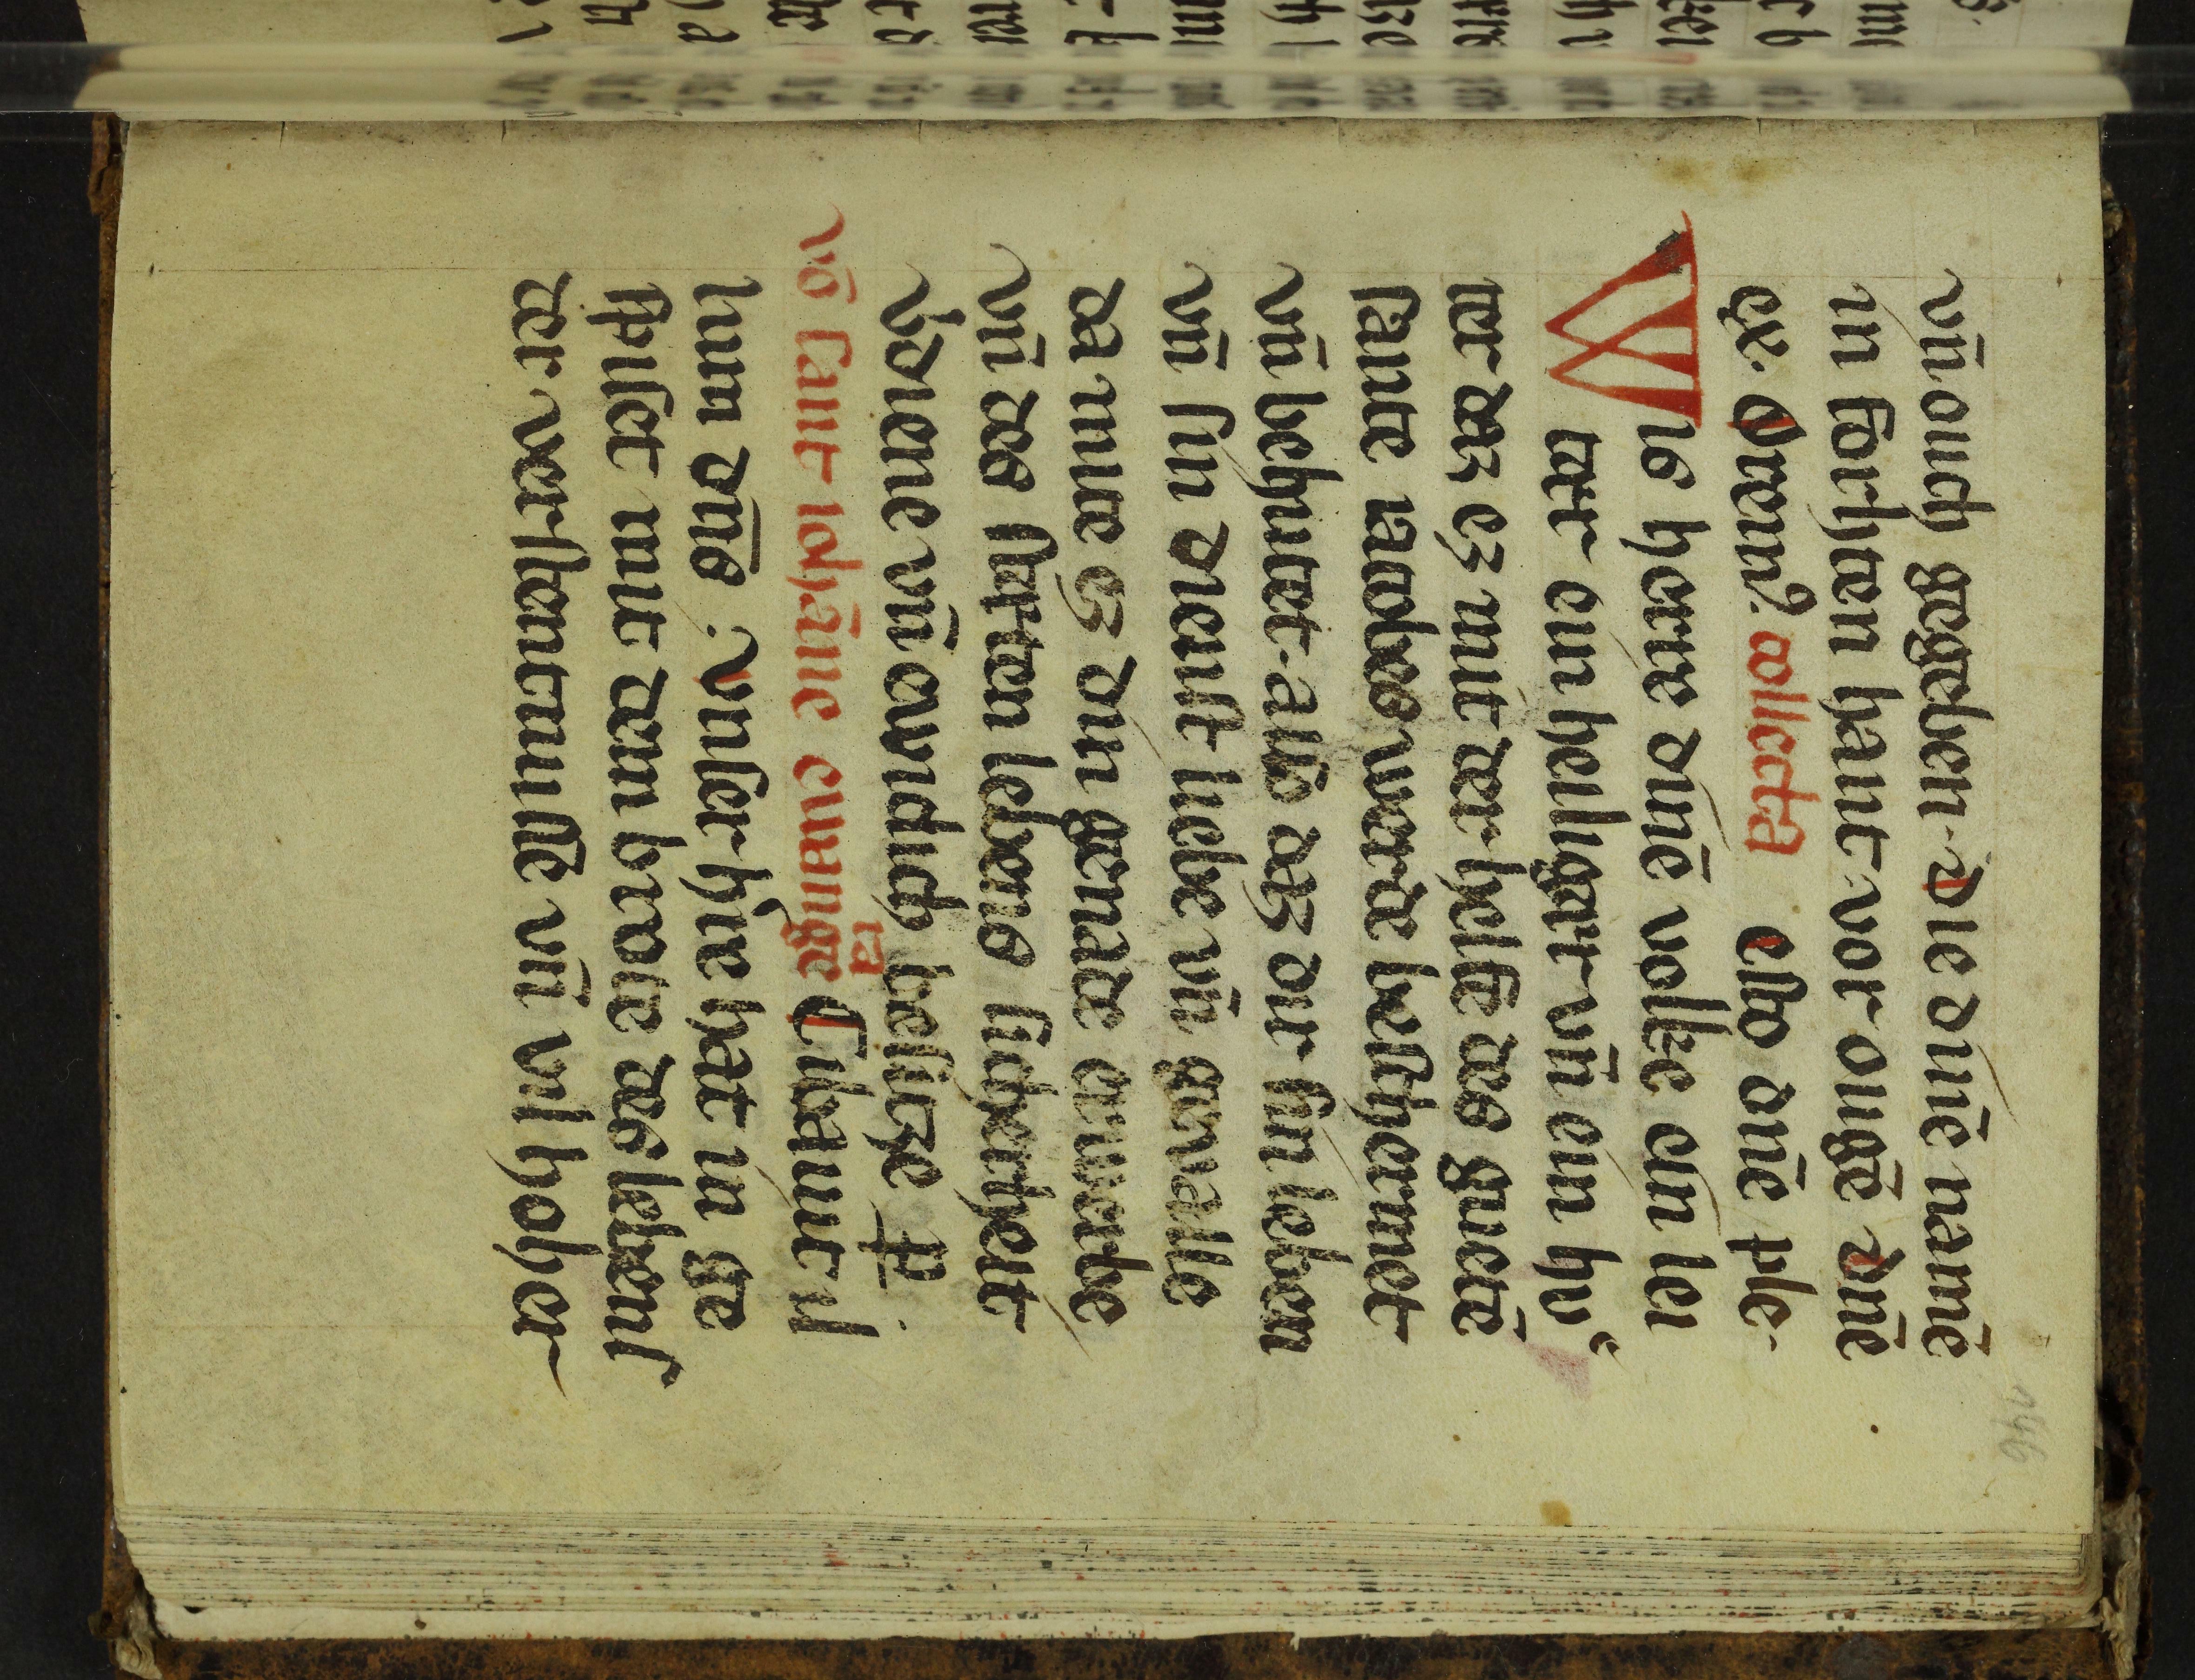 vn̄ ouch gegeben. die dinē namē
in forhten hant vor ougē dinē
Oremꝰ. collecta Esto dn̄e ple
Wis herre dinē volke ein lei
ter ein heiliger vn̄ ein hv
ter daz ez mit der helfe des gutē
sante iacobes werde beschermet
vn̄ behutet. also daz dir sin leben
vn̄ sin dienist liebe vn̄ gevalle
da mite ez din genade erwerbe
vn̄ des steten lebens sicherheit
diene vn̄ ewiclich besitze
vō sant iohanne ewange Cibauit il
lum dn̄s. vnser herre hatt in ge
spiset mit dem brote des lebens
der vernunste vn̄ vil hoher